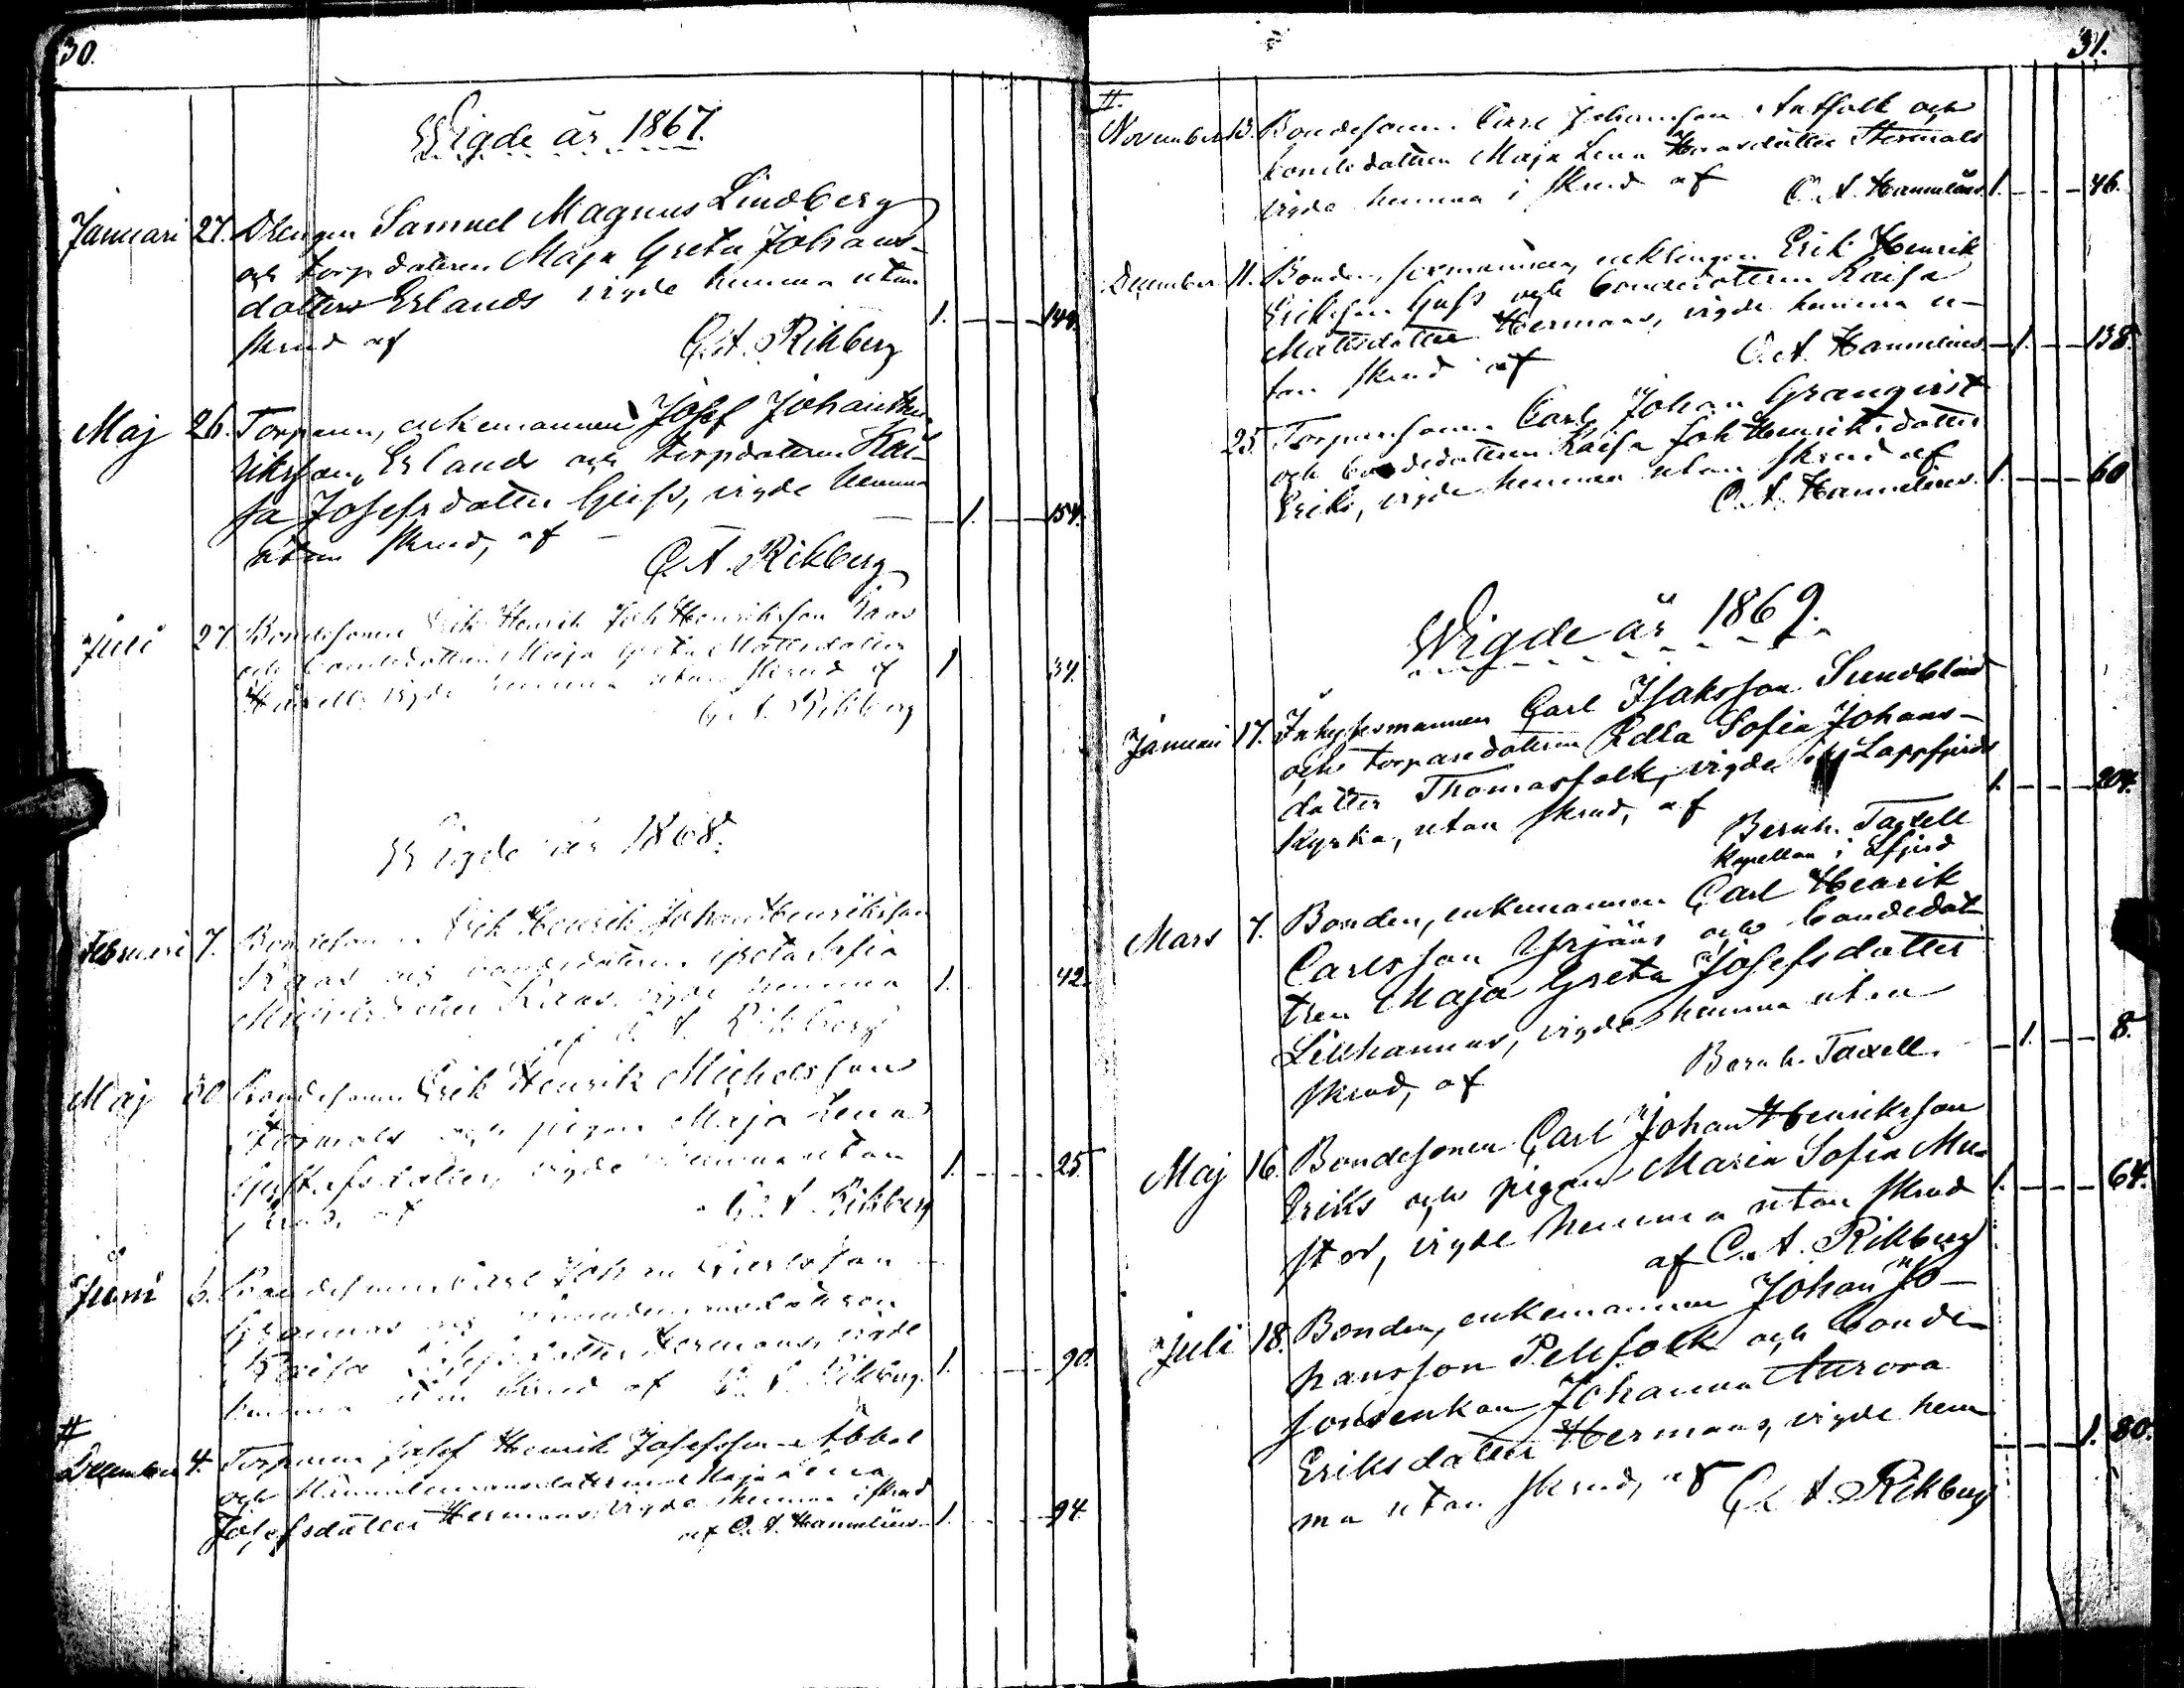 30.
Wigde år 1867.
Januari 27. Drengen Samuel Magnus Lindberg
och torpdottren Maja Greta Johans-
dotter Erlands vigde hemma utan
skrud af C. A. Rikberg 1. 144.
Maj 26. Torparen, enkemannen Josef Johan
Eriksson Erlands och torpdottren Kai-
sa Josefsdotter Geiss, vigde hemma
utan skrud, af 1. 154.
C. A. Rikberg
Juli 27. Bondesonen Erik Henrik Joh Henriksson Kaas
och bondedottren Maja Greta Mattsdotter
vigde hemma utan skrud af 1 34.
C. A. Rikberg
Wigde år 1868.
Februari 7. Bondesonen Erik Henrik Johan Henriksson
Kaas och bondedottren Greta Sofia
Kaas, vigde hemma 1. 42.
af C. A. Rikberg
Maj 30 Bondesonen Erik Henrik Michelsson
och pigan Maja Lena
Gustafsdotter, vigde hemma utan 1. 25
skrud, af C. A. Rikberg
Juni 6. Bondesonen Carl Johan
och
Kaisa Josefsdotter Hermans, vigde
hemma utan skrud af C. A. Rikberg. 1. 90.
#
December 4. Torparen Josef Henrik Josefsson Abbal
och Maja Lena
Josefsdotter Hermans, vigde hemma i skrud
af C. A. Hannelius 1. 94.
31.
#
November 13. Bondesonen Carl Johansson Antfolk och
bondedottren Maja Lena Hansdotter
vigde hemma i skrud af C. A. Hannelius 1. 46.
December 11. Bonden, enklingen Erik Henrik
Eriksson och bondedottren Kaisa
Mattsdotter Hermans, vigde hemma u-
tan skrud af C. A. Hannelius 1. 138.
25. Torparesonen Carl Johan Granqvist
och bondedottren Kaisa Joh Henriksdotter
Eriks, vigde hemma utan skrud af
C. A. Hannelius 1. 60
Wigde år 1869.
Januari 17. Inhysesmannen Carl Isaksson Sundblad
och torparedottren Edla Sofia Johans-
dotter Thomasfolk, vigde i Lappfjerds
kyrka, utan skrud, af 1. 204.
Bernh. Taxell
Kapellan i Lfjerd
Mars 7. Bonden, enkemannen Carl Henrik
Carlsson Yrjäns och bondedot-
tren Maja Greta Josefsdotter
Lillhannus, vigde hemma utan
skrud, af Bernh. Taxell. 1. 8.
Maj 16. Bondesonen Carl Johan Henriksson
Eriks och pigan Maria Sofia Mu-
stor, vigde hemma utan skrud 1. 64.
af C. A. Rikberg
Juli 18. Bonden, enkemannen Johan Jo-
hansson Pelkfolk och bonde-
sonsenkan Johanna Aurora
Eriksdotter Hermans, vigde hem
ma utan skrud, af C. A. Rikberg 1. 80.